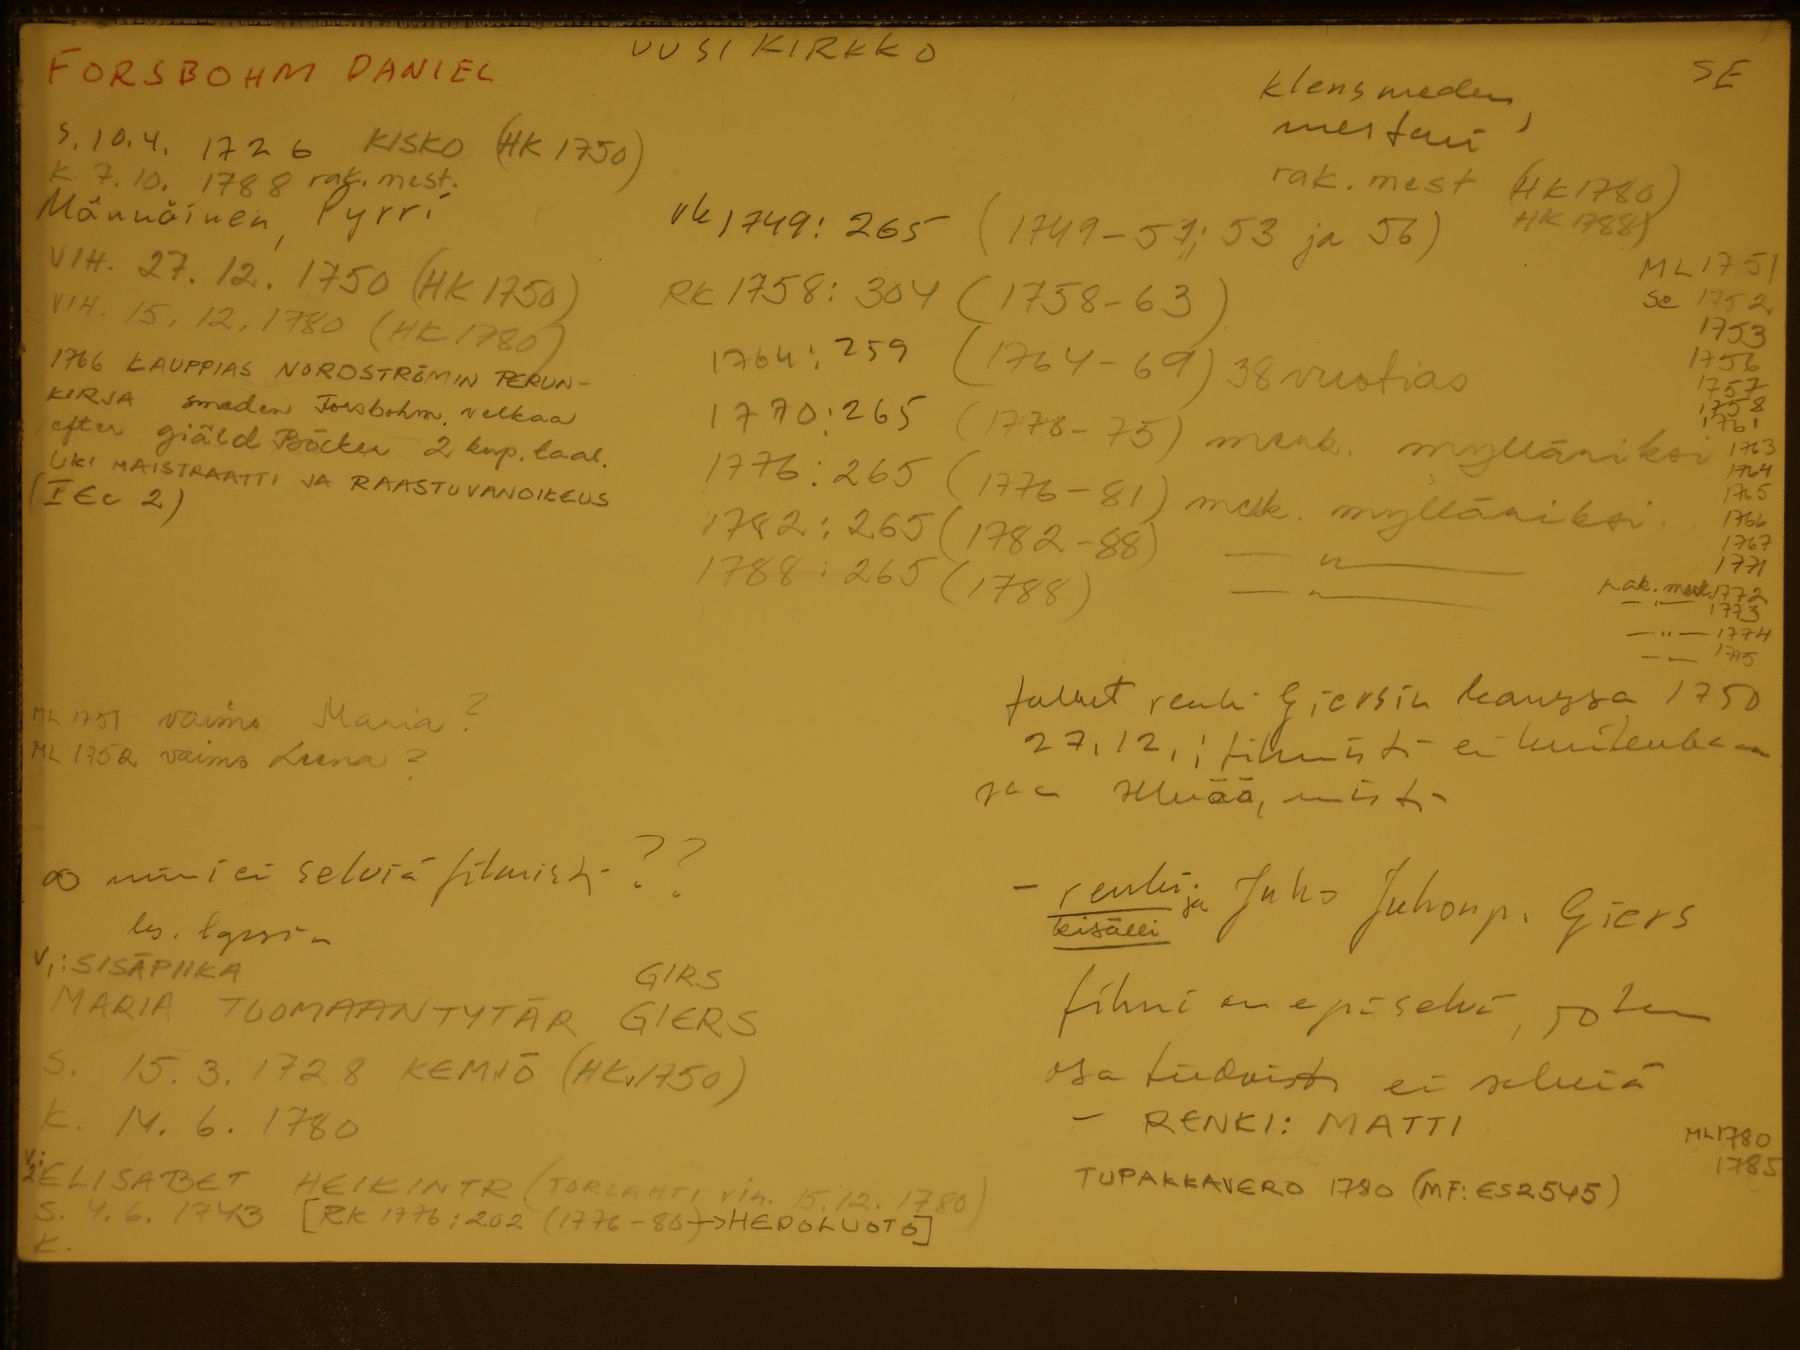 FORSBOHM DANIEL
UUSIKIRKKO
SE
klensmeden,
mestari
rak. mest (HK 1780)
HK 1788)
S. 10.4. 1726 KISKO (HK 1750)
K. 7.10. 1788 rak. mest.
Männäinen, Pyrri
VIH. 27. 12. 1750 (HK 1750)
VIH. 15. 12. 1780 (HK 1780)
1766 KAUPPIAS NORDSTRÖMIN PERUN-
KIRJA smeden Forsbohm velkaa
efter giäld Böcker 2 kup. taal.
UKI MAISTRAATTI JA RAASTUVANOIKEUS
(I Ec 2)
rk 1749: 265 (1749-51; 53 ja 56)
RK 1758: 304 (1758-63)
1764: 259 (1764-69) 38 vuotias
1770: 265 (1778-75) merk. mylläriksi
1776: 265 (1776-81) merk. mylläriksi.
1782: 265 (1782-88) — " —
1788: 265 (1788) — " —
ML 1751
se 1752
1753
1756
1757
1758
1761
1763
1764
1765
1766
1767
1771
rak. mest. 1772
— " — 1773
— " — 1774
— " — 1775
ML 1751 vaimo Maria?
ML 1752 vaimo Leena?
∞ nimi ei selviä filmistä??
V1: SISÄPIIKA
GIRS
MARIA TUOMAANTYTÄR GIERS
S. 15. 3. 1728 KEMIÖ (HK 1750)
K. 14. 6. 1780
V2: ELISABET HEIKINTR (TORLAHTI vih. 15.12. 1780)
S. 4.6. 1743 [RK 1776: 202 (1776-80) → HEPOLUOTO]
K.
tullut renki Giersin kanssa 1750
27.12.; filmistä ei kuitenkaan
saa selvää, mistä
- renki ja Juho Juhonp. Giers
kisälli
filmi on epäselvä, joten
osa tiedoista ei selviä
- RENKI: MATTI
ML 1780
1785
TUPAKKAVERO 1780 (MF: ES2545)